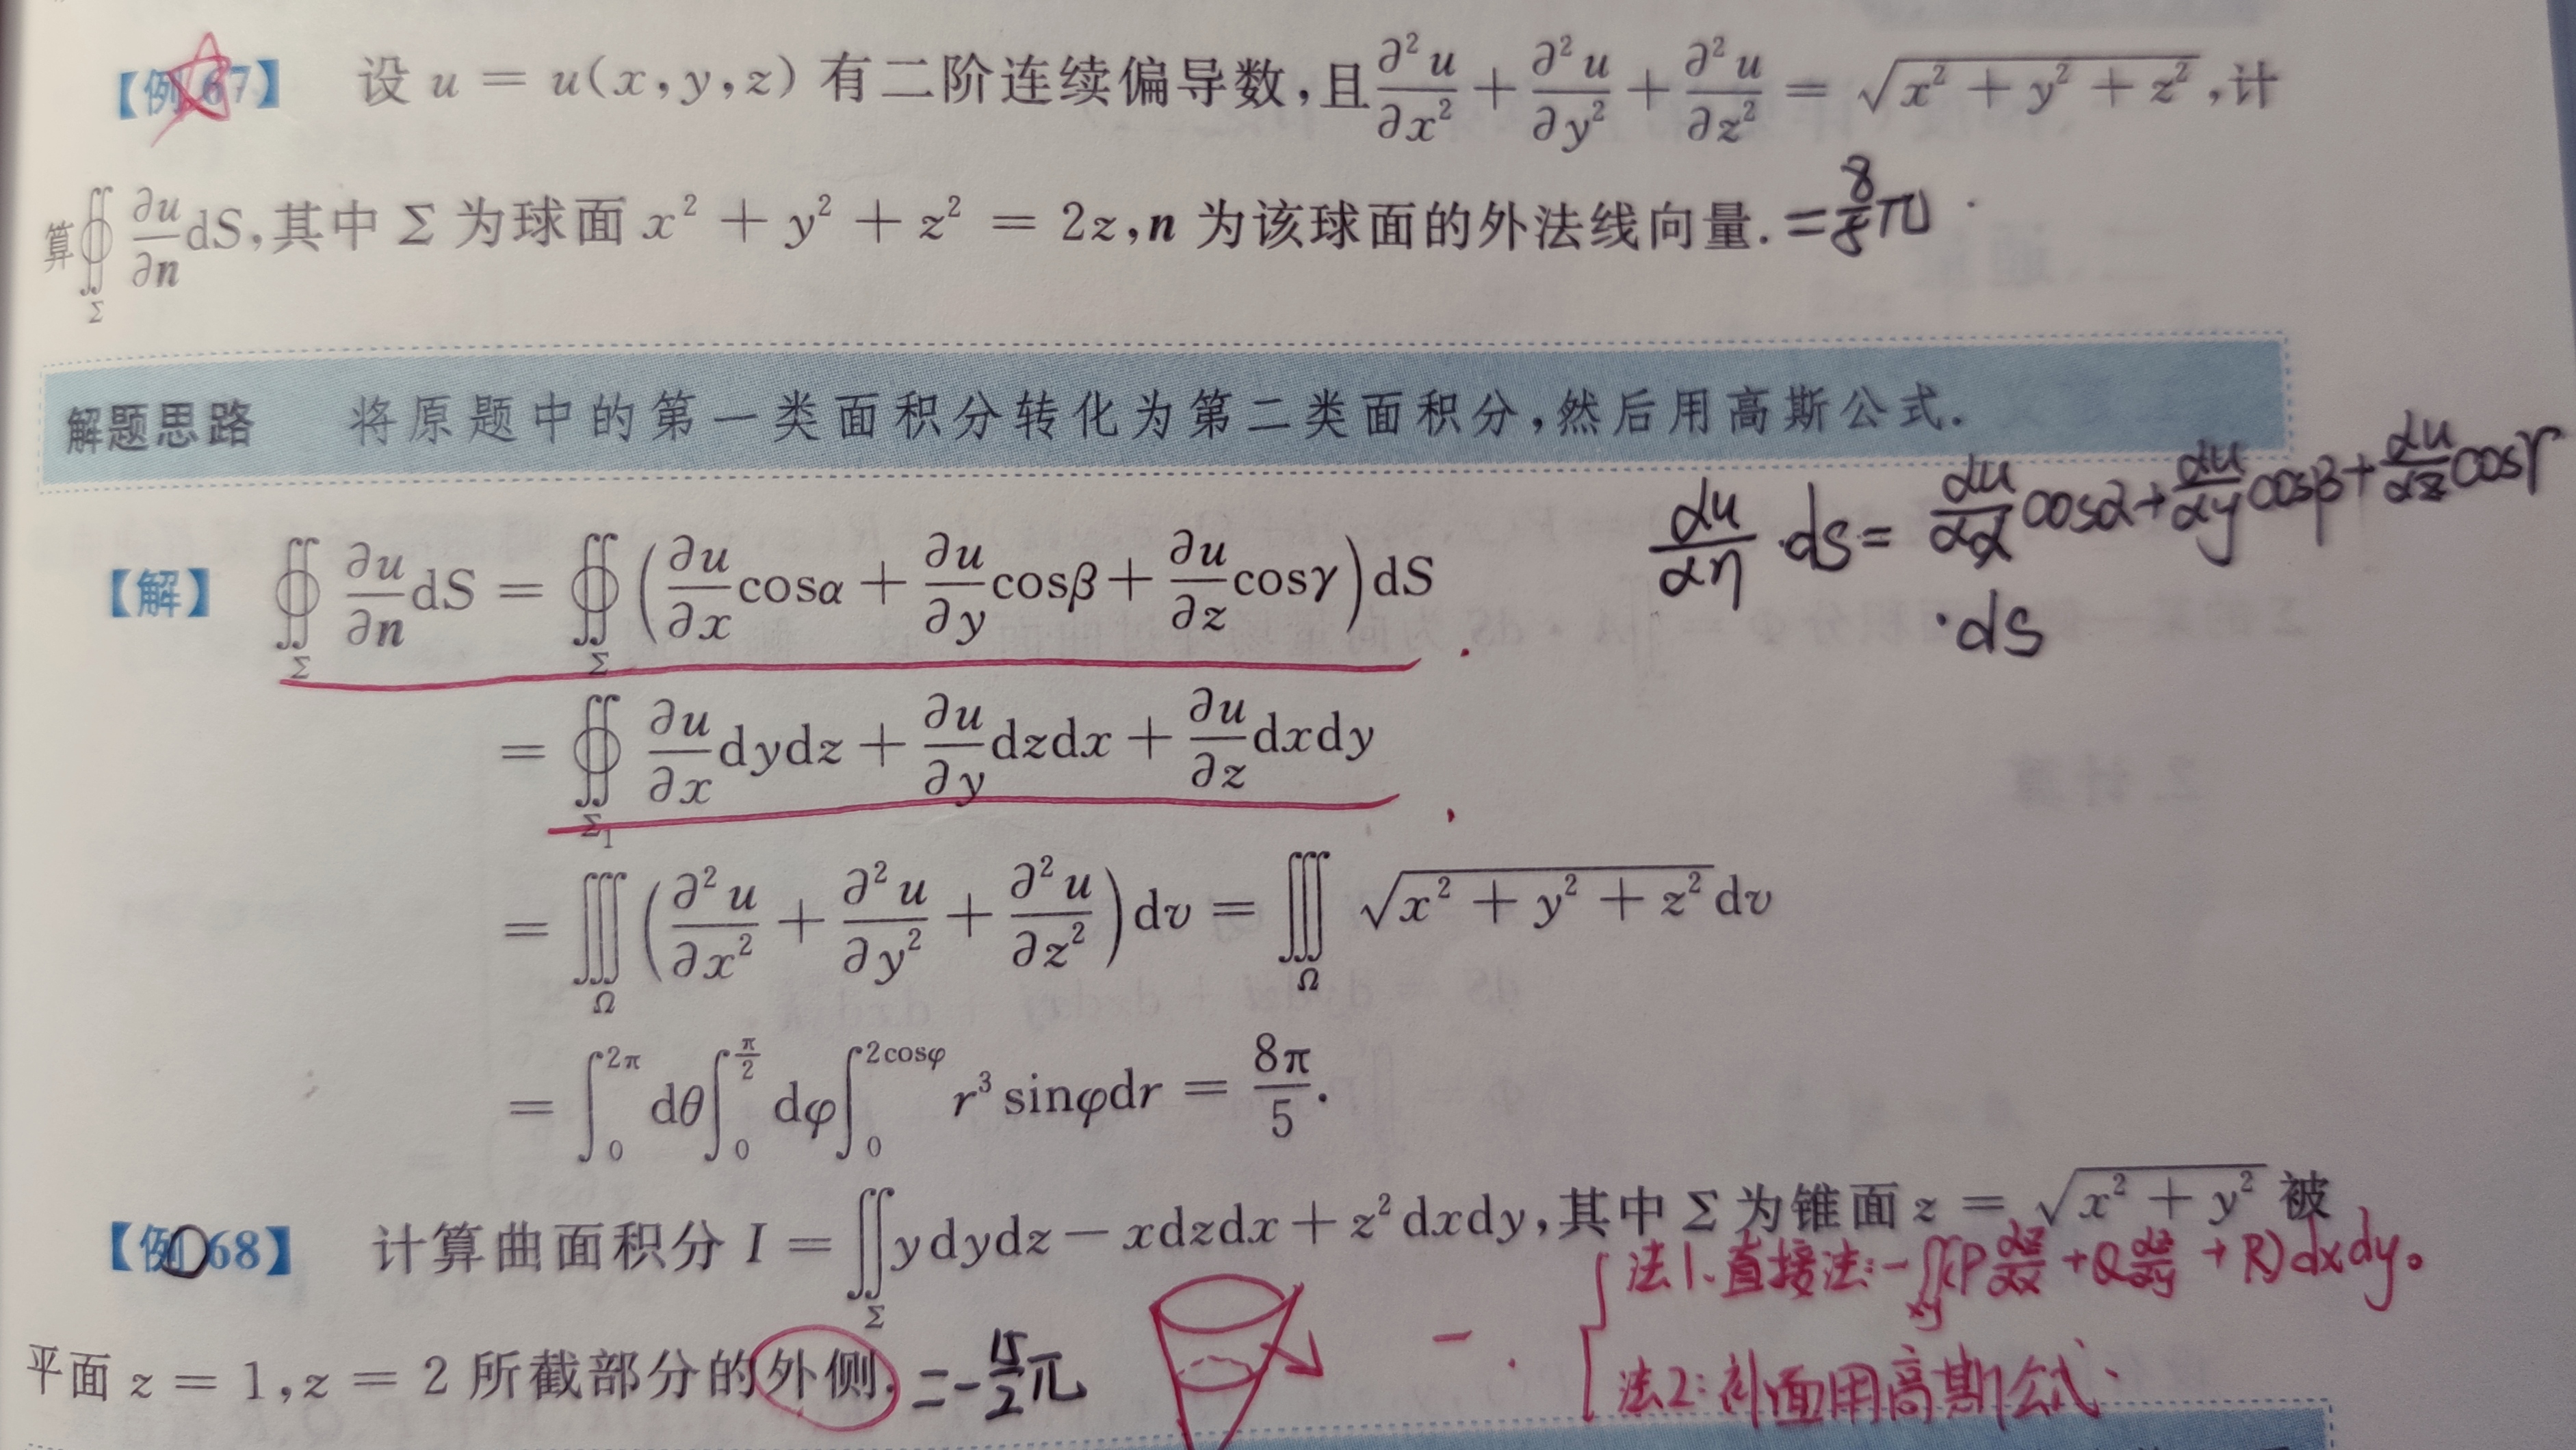 【例 67】 设 u = u(x,y,z) 有二阶连续偏导数,且 ∂²u/∂x² + ∂²u/∂y² + ∂²u/∂z² = √(x² + y² + z²),计
算∯_Σ ∂u/∂n dS,其中 Σ 为球面 x² + y² + z² = 2z,n 为该球面的外法线向量. = 8/5 π
解题思路 将原题中的第一类面积分转化为第二类面积分,然后用高斯公式.
∂u/∂n · ds = ∂u/∂x cosα + ∂u/∂y cosβ + ∂u/∂z cosγ
· ds
【解】 ∯_Σ ∂u/∂n dS = ∯_Σ (∂u/∂x cosα + ∂u/∂y cosβ + ∂u/∂z cosγ) dS
= ∯_Σ₁ ∂u/∂x dydz + ∂u/∂y dzdx + ∂u/∂z dxdy
= ∭_Ω (∂²u/∂x² + ∂²u/∂y² + ∂²u/∂z²) dv = ∭_Ω √(x² + y² + z²) dv
= ∫₀^2π dθ ∫₀^π/2 dφ ∫₀^2cosφ r³ sinφ dr = 8π/5.
【例 68】 计算曲面积分 I = ∬_Σ ydydz − xdzdx + z²dxdy,其中 Σ 为锥面 z = √(x² + y²) 被
法1、直接法: −∬_xy (P ∂z/∂x + Q ∂z/∂y + R) dxdy。
平面 z = 1,z = 2 所截部分的外侧. = −15/2 π
法2: 补面用高斯公式.